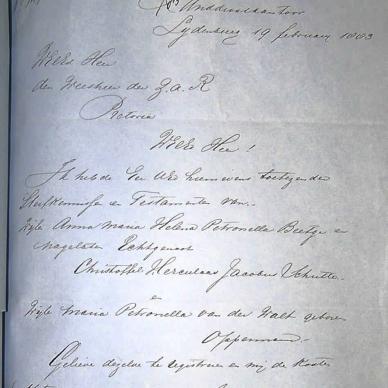 Lydenburg 19 februari 1883
WelEd Heer
den Weesheer der Z.A.R
Pretoria
WelEd Heer!
Ik heb de Eer Ued hiernevens toetezenden
Sterfkennisse en Testamenten van
Wijle Anna Maria Helena Petronella Beetge en
nagelaten Echtgenoot
Christoffel Herculaas Jacobus Schutte
en
Wijle Maria Petronella van der Walt geboren
Opperman
Gelieve dezelve te registreeren en mij de kosten